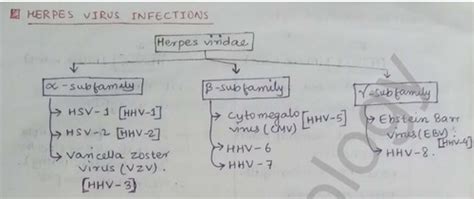 HERPES VIRUS INFECTIONS
Herpes viridae
α-subfamily
→ HSV-1 [HHV-1]
→ HSV-2 [HHV-2]
→ Varicella zoster
virus (VZV).
[HHV-3]
β-subfamily
→ Cytomegalo [HHV-5]
virus (CMV)
→ HHV-6
→ HHV-7
γ-subfamily
→ Ebstein Barr
virus (EBV) [HHV-4]
→ HHV-8.
ology